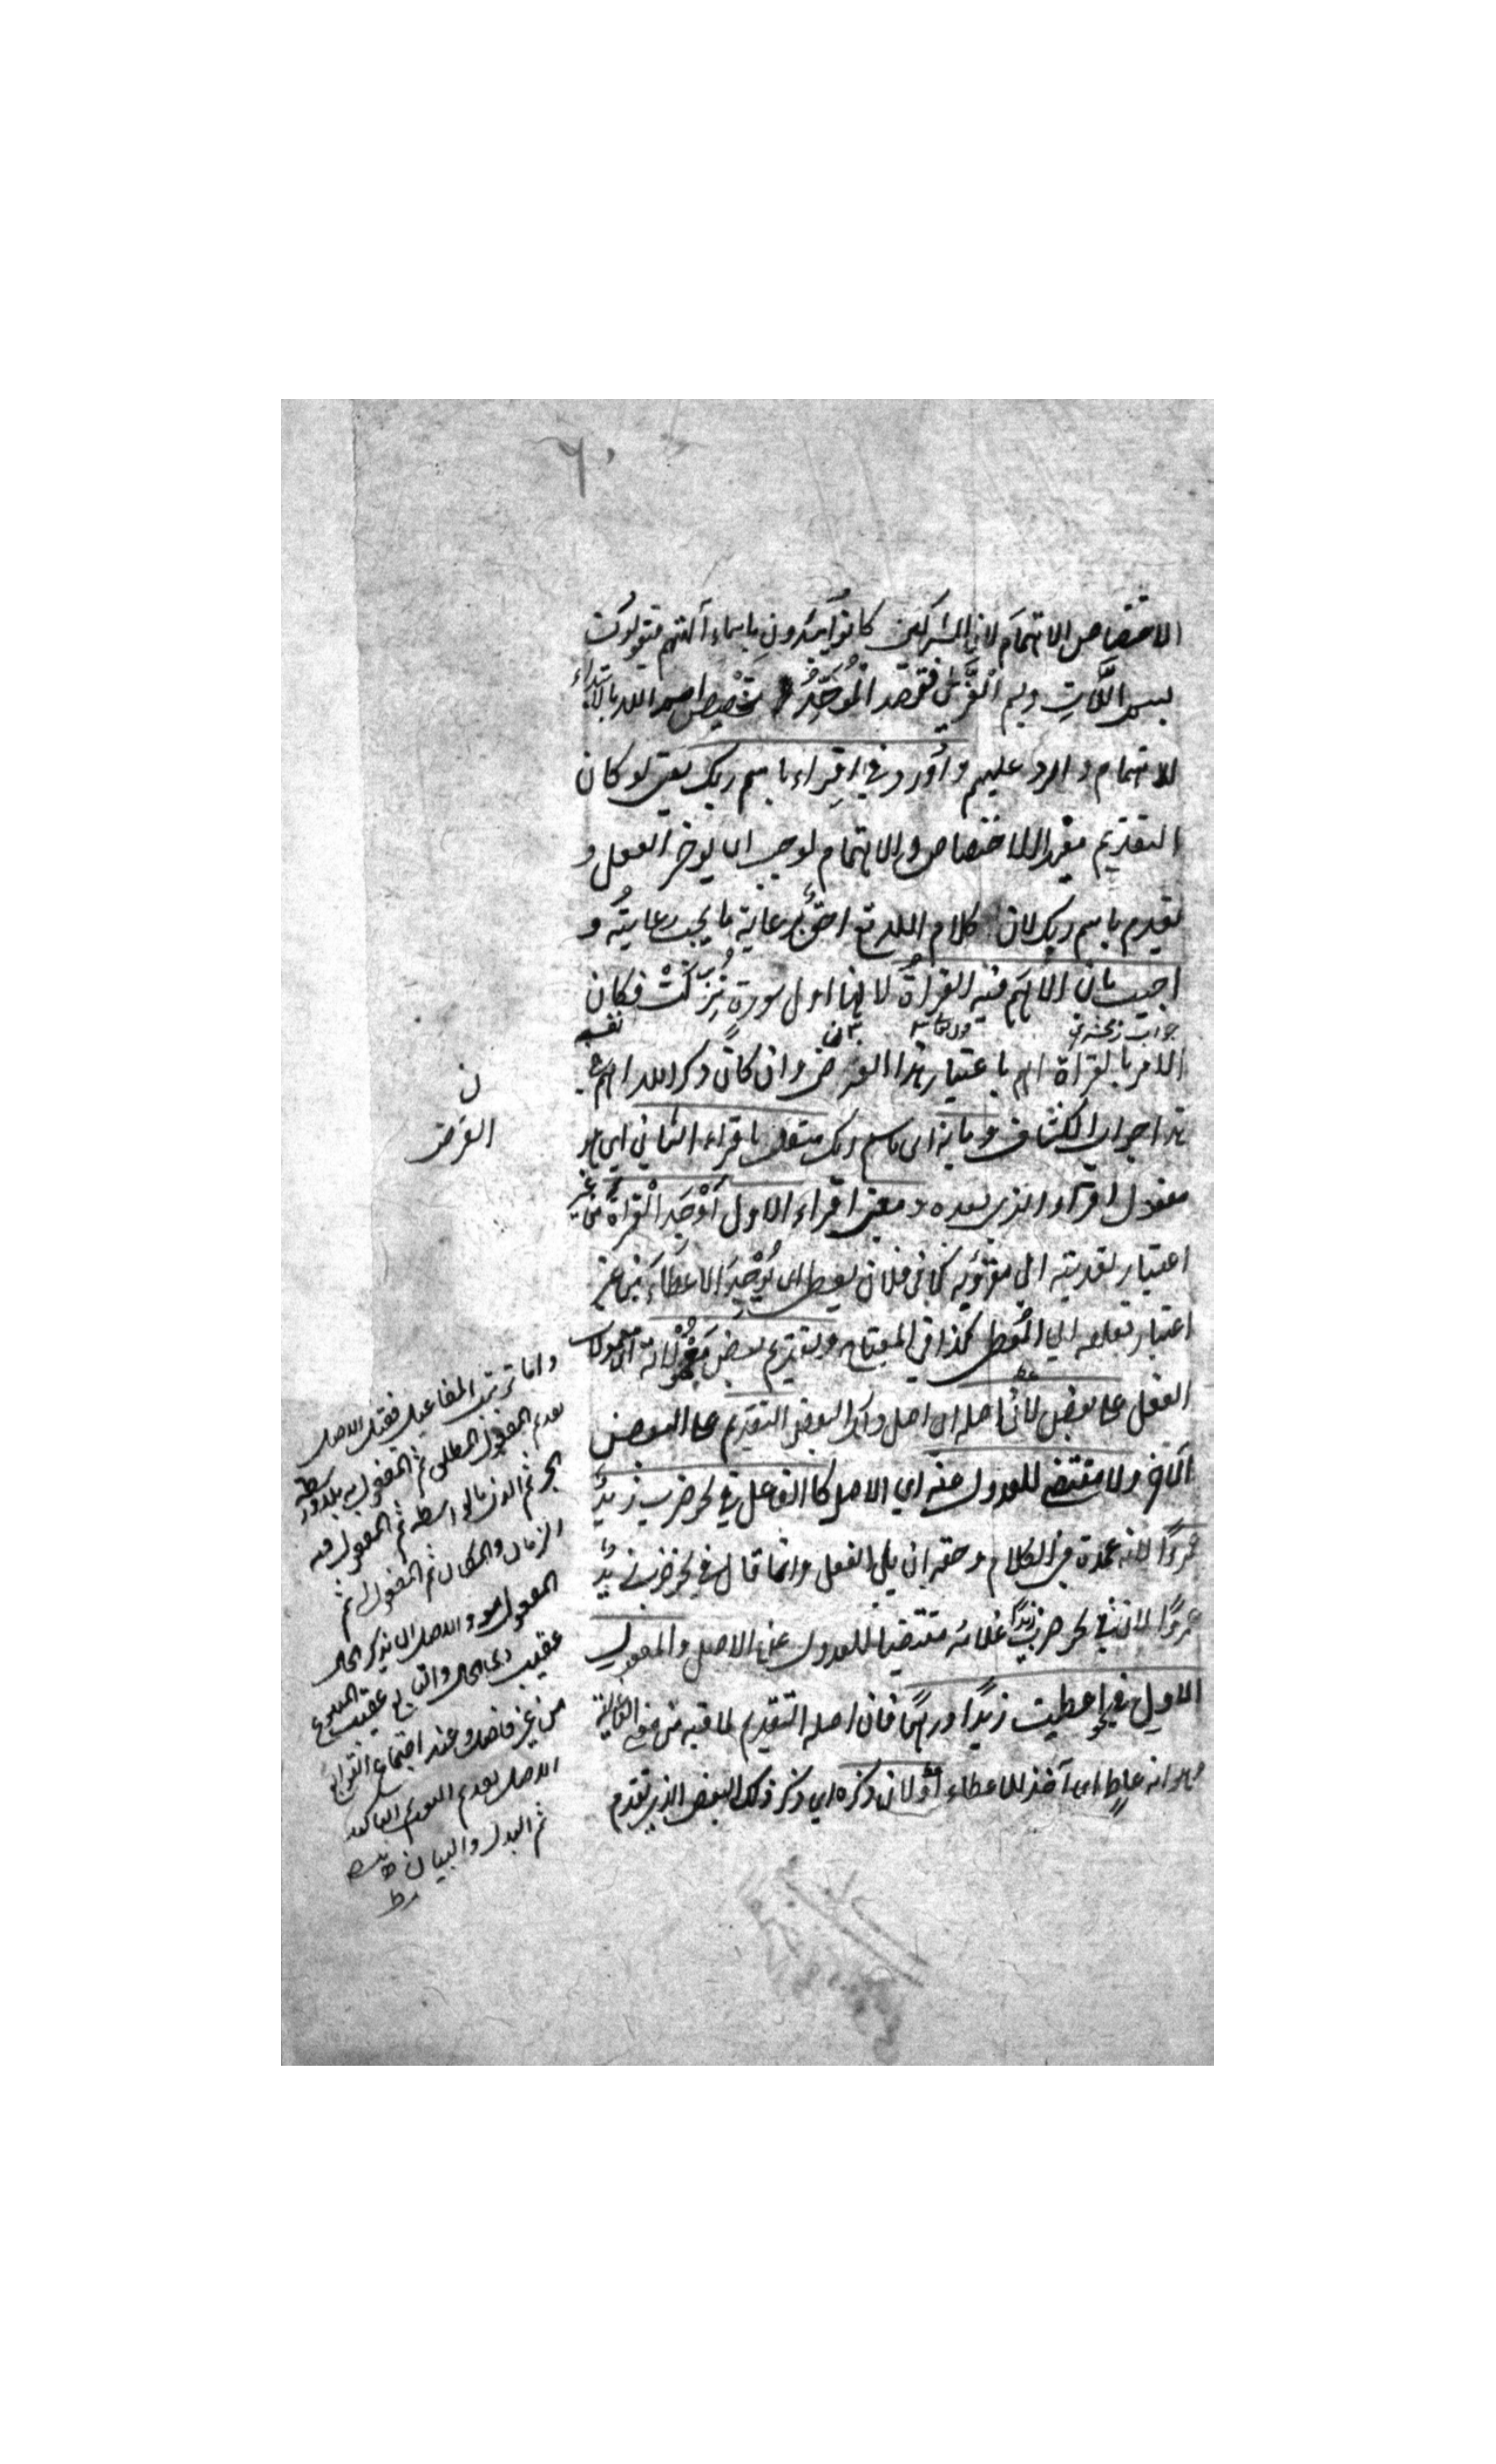 ٦٠
الاختصاص الاهتمام لان المشركين كانوا يبدؤن باسماء آلهتهم فيقولون
بسم اللات وبسم العزى فقصد الموحد تخصيص اسم الله بالابتداء
للاهتمام والرد عليهم واورد في اقراء باسم ربك يعنى لو كان
التقديم مفيدا للاختصاص والاهتمام لوجب ان يؤخر الفعل و
يقدم باسم ربك لان كلام الله تع احق برعاية ما يجب رعايته و
اجيب بان الاهم فيه القراة لانها اول سورة نزلت فكان
الامر بالقراة اهم باعتبار هذا العرض وان كان ذكر الله اهم في نفسه
هذا جواب الكشاف وبانه اى باسم ربك متعلق باقراء الثاني اي هو
مفعول اقرأ الذى بعده ومعنى اقراء الاول اوجد القراة من غير
اعتبار تعديته الى مقروء به كما في فلان يعطى اى يوجد الاعطاء من غير
اعتبار تعلقه الى المعطى كذا في المفتاح وتقديم بعض معمولاته اى معمولات
الفعل على بعض لان اصله اى اصل ذلك البعض التقديم على البعض
الآخر ولا مقتضى للعدول عنه اي الاصل كالفاعل في نحو ضرب زيد
عمروا لانه عمدة في الكلام وحقه ان يلى الفعل وانما قال في نحو ضرب زيد
عمروا لان في نحو ضرب زيدا غلامه مقتضيا للعدول عن الاصل والمفعول
الاول في نحو اعطيت زيدا درهما فان اصله التقديم لما فيه من معنى الفاعلية
وهو انه عاط اى آخذ للاعطاء او لان ذكره اي ذكر ذلك البعض الذى تقدم
العرض
واما ترتيب المفاعيل فقيل الاصل
تقديم المفعول المطلق ثم المفعول به بلا واسطة
الجر ثم الذى بالواسطة ثم المفعول فيه
الزمان والمكان ثم المفعول له ثم
المفعول معه والاصل ان يذكر الحال
عقيب ذى الحال والتابع عقيب المتبوع
من غير فاصل وعند اجتماع التوابع
الاصل تقديم النعت ثم التاكيد
ثم البدل والبيان